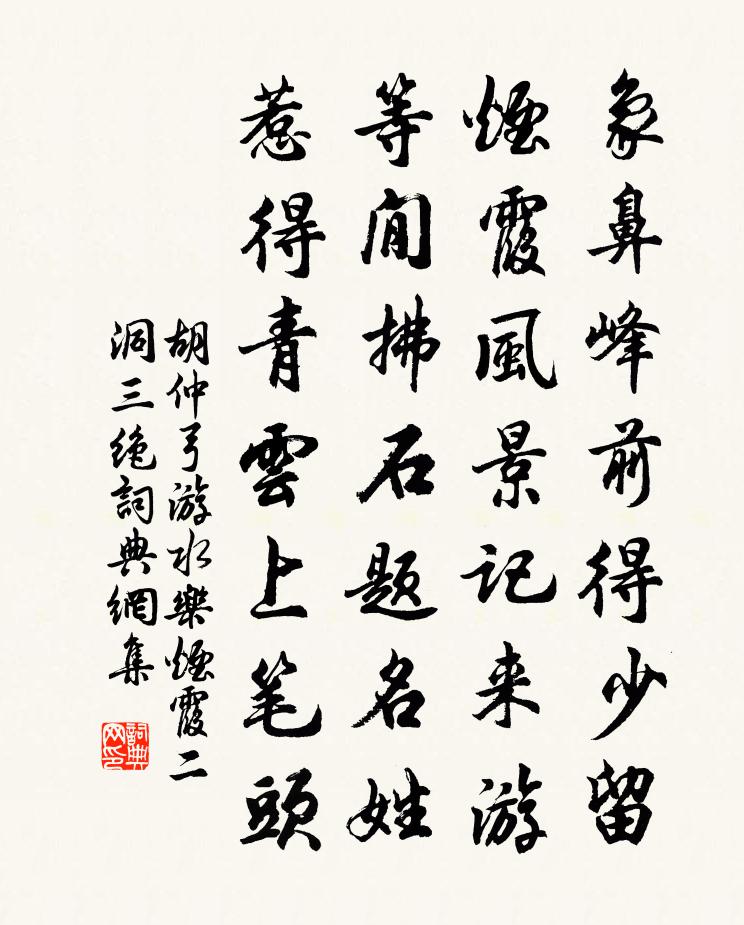 象鼻峰前得少留
煙霞風景記来游
等閒拂石题名姓
惹得青雲上笔頭
胡仲弓游水樂煙霞二
洞三绝詞典網集
詞典网印